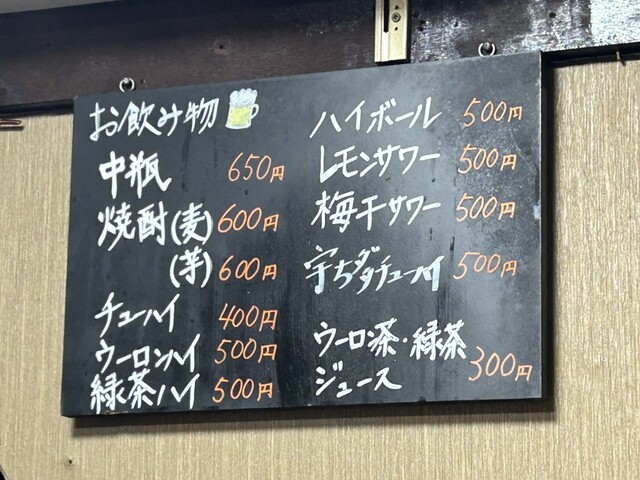 お飲み物
中瓶 650円
焼酎(麦) 600円
(芋) 600円
チューハイ 400円
ウーロンハイ 500円
緑茶ハイ 500円
ハイボール 500円
レモンサワー 500円
梅干サワー 500円
宇ちダダチューハイ 500円
ウーロン茶・緑茶
ジュース 300円